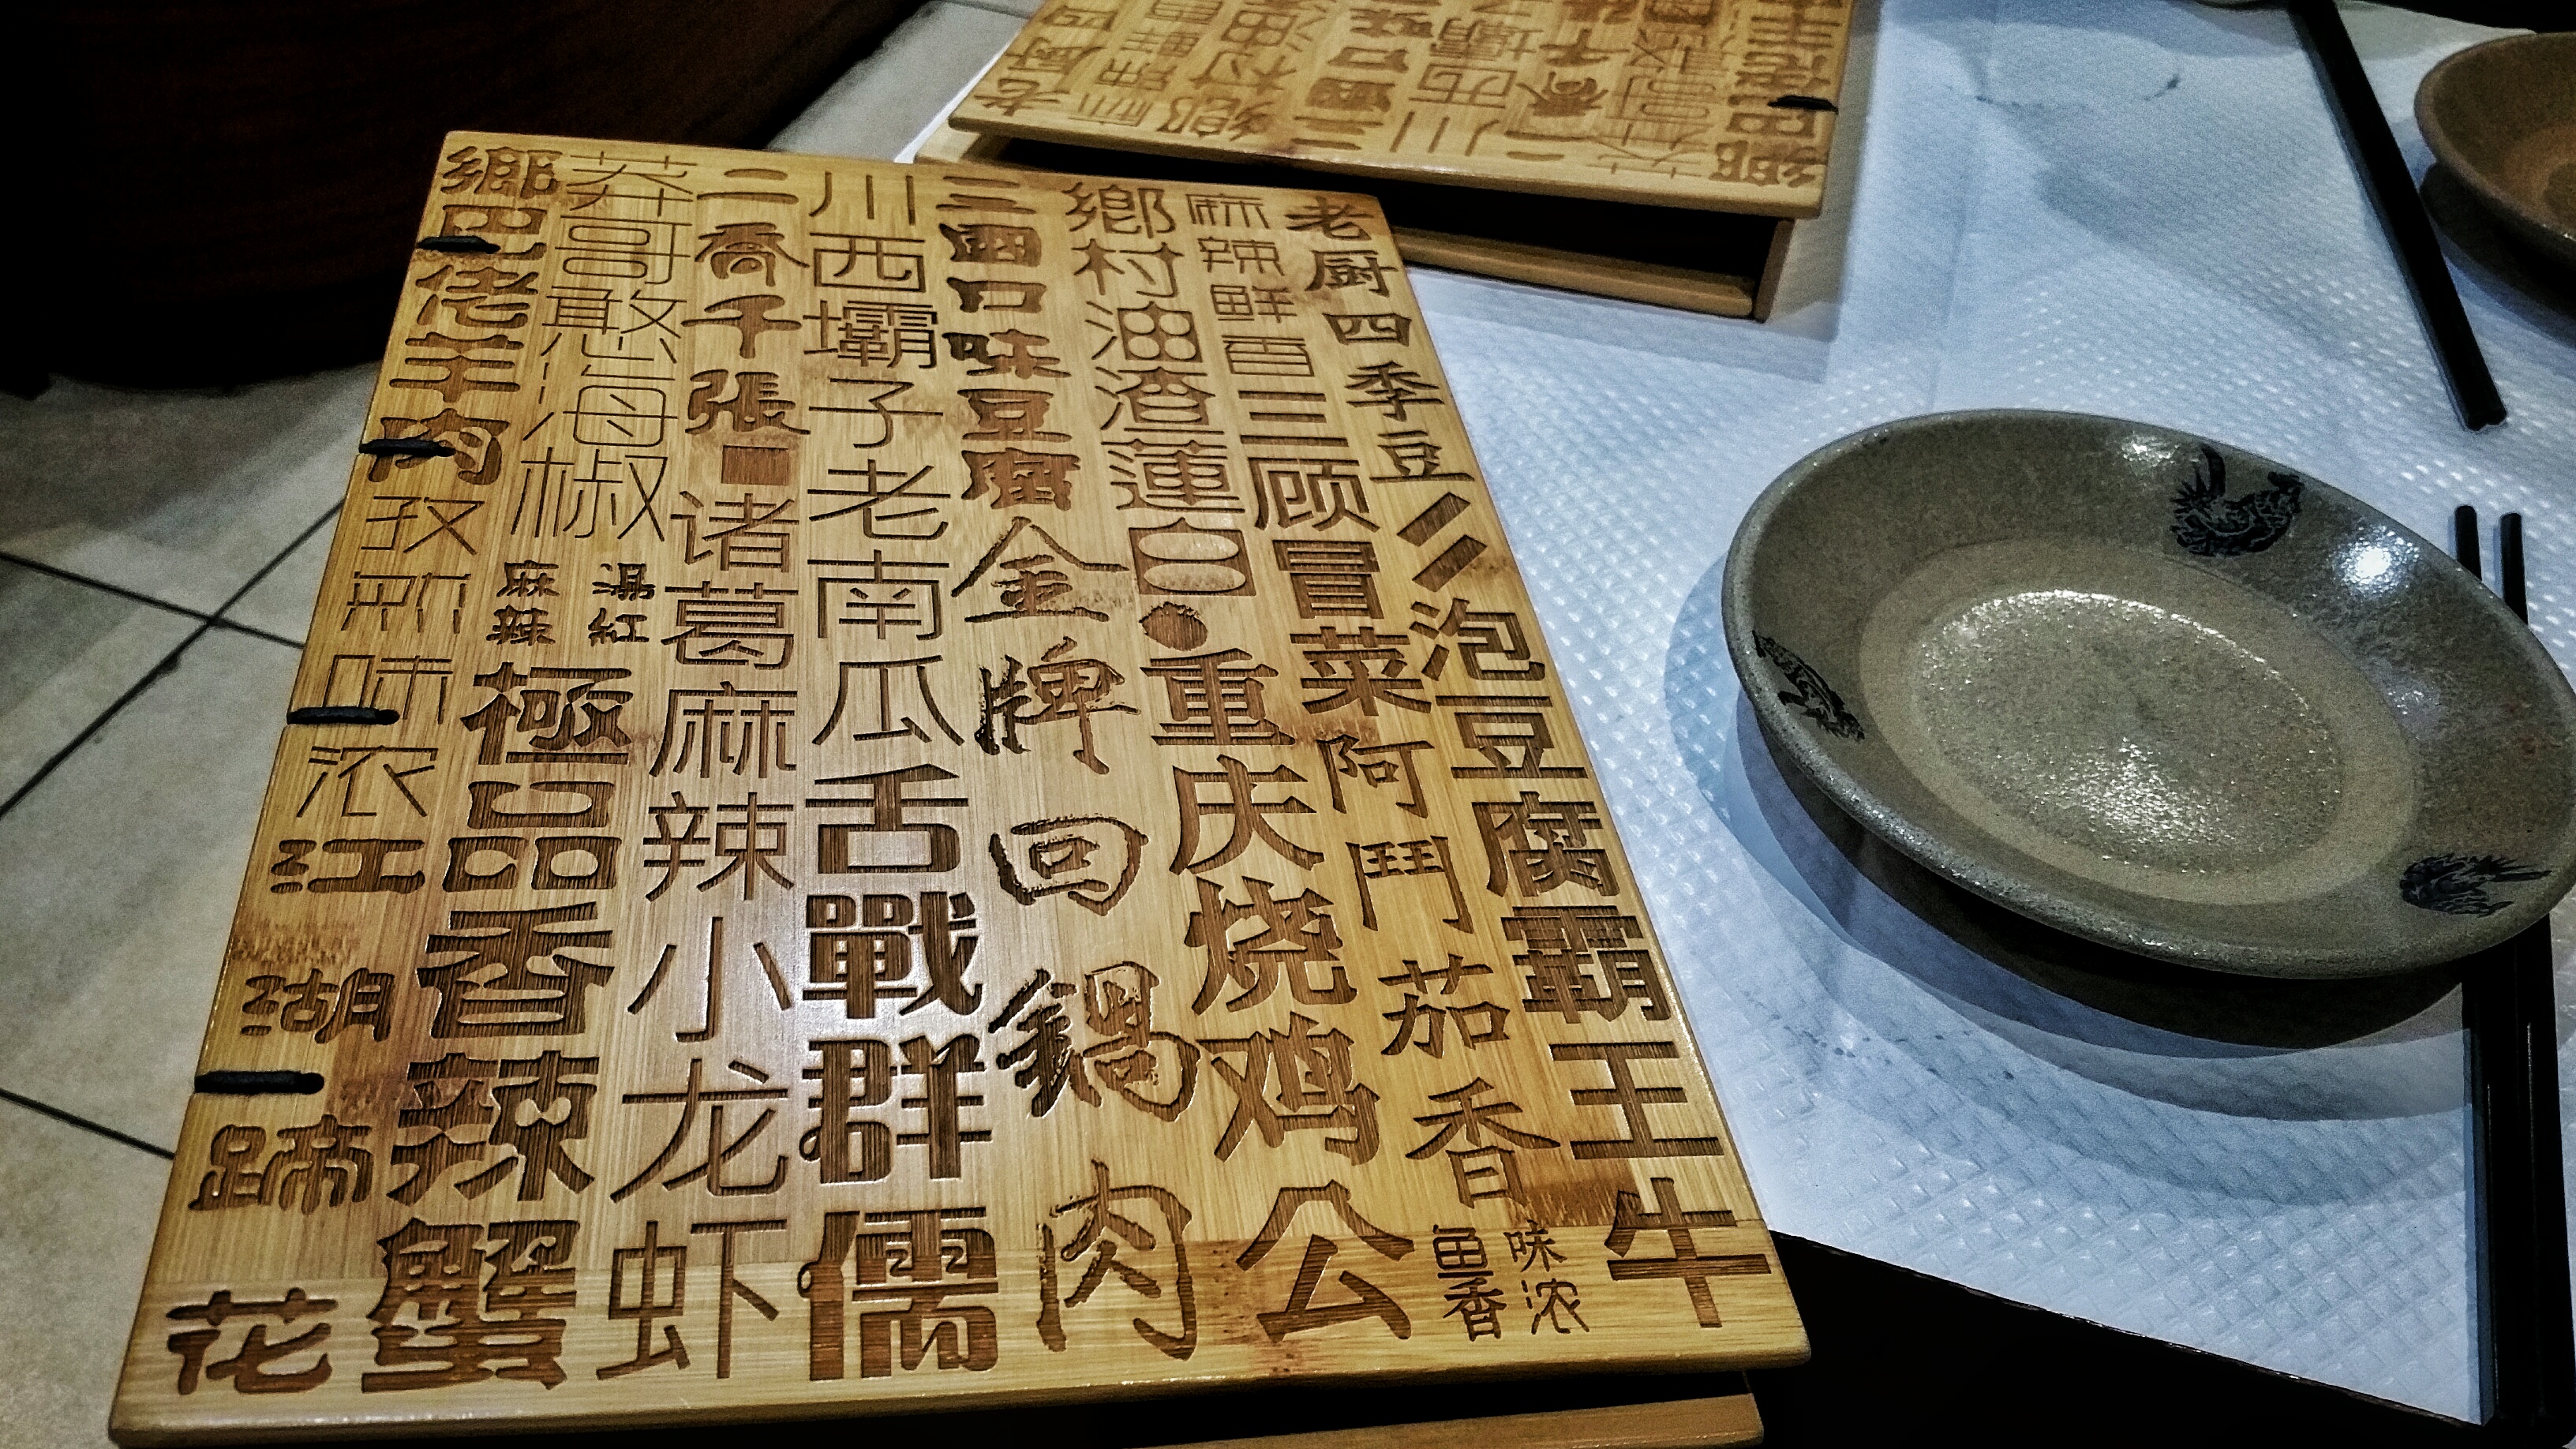 老厨四季豆泡豆腐霸王牛
麻辣鲜香三顾冒菜阿鬥茄香
味浓
鱼香
鄉村油渣蓮白重庆烧鸡公
三國口味豆腐金牌回鍋肉
川西壩子老南瓜舌戰群儒
二喬千張诸葛麻辣小龙虾
莽哥憨海椒
湯紅
麻辣
極品香辣蟹
鄉巴佬羊肉孜然味浓江湖蹄花